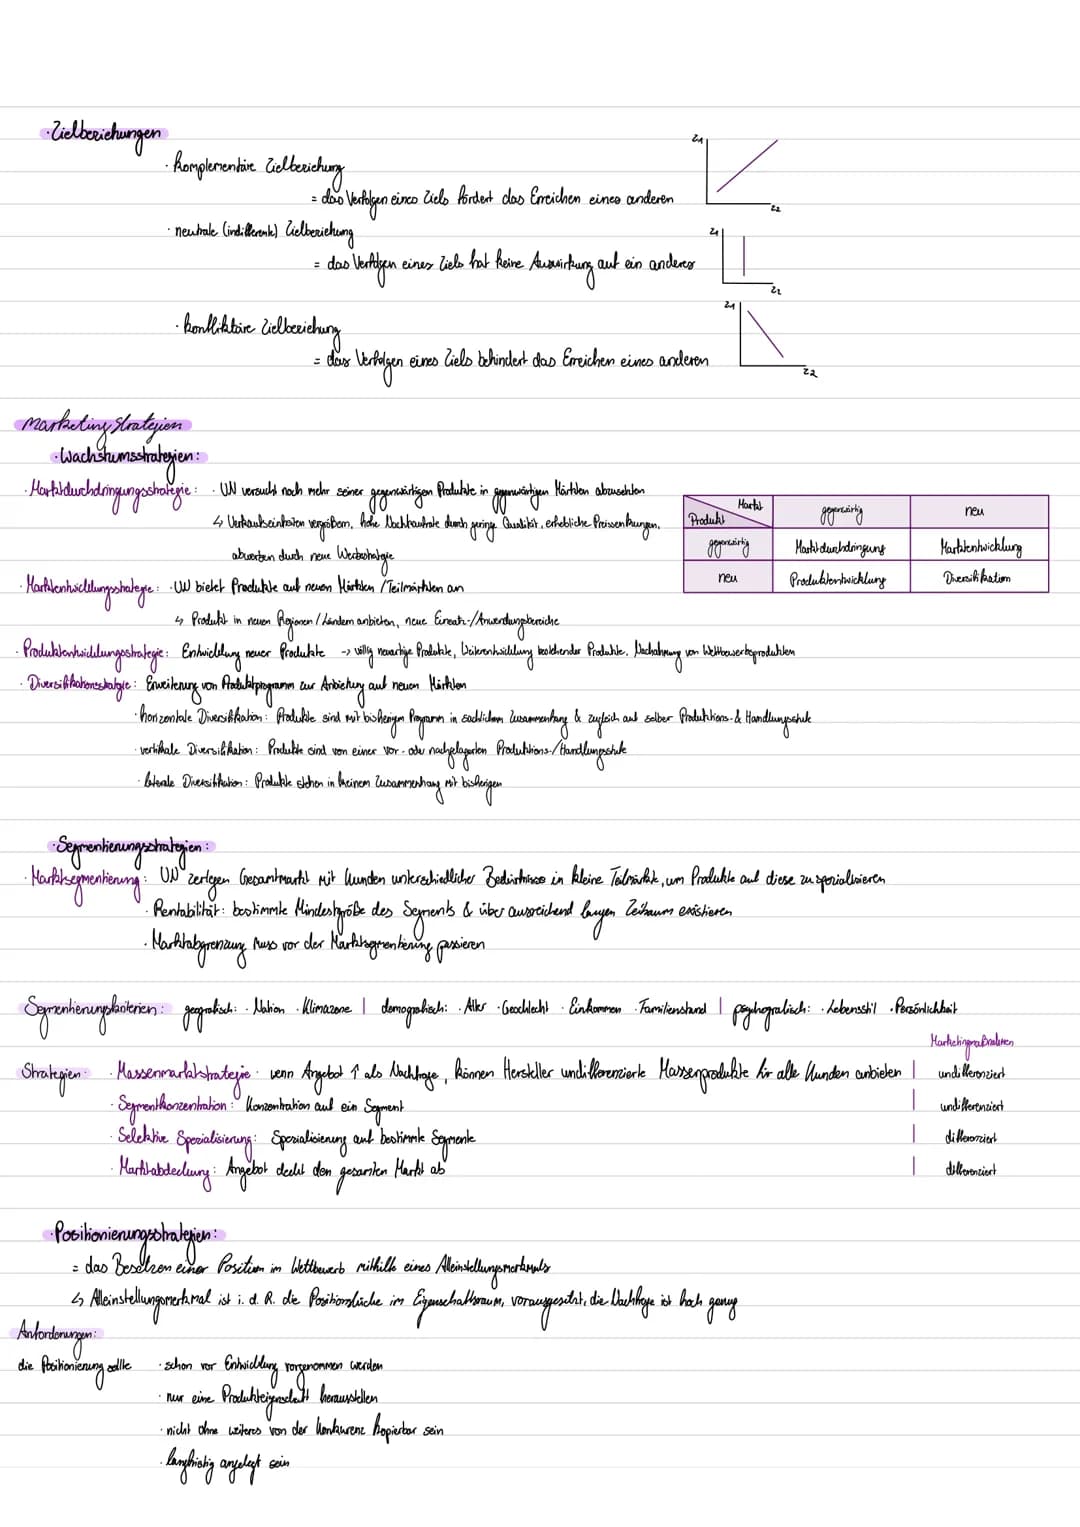 · Zielbeziehungen
· komplementäre Zielbeziehung
= das Verfolgen eines Ziels fördert das Erreichen eines anderen
Z1
Z2
· neutrale (indifferente) Zielbeziehung
= das Verfolgen eines Ziels hat keine Auswirkung auf ein anderes
Z1
Z2
· konfliktäre Zielbeziehung
= das Verfolgen eines Ziels behindert das Erreichen eines anderen
Z1
Z2
Marketing Strategien
· Wachstumsstrategien:
· Marktdurchdringungsstrategie: · UN versucht noch mehr seiner gegenwärtigen Produkte in gegenwärtigen Märkten abzusetzen
↳ Verkaufseinheiten vergrößern, hohe Nachkaufrate durch geringe Qualität, erhebliche Preissenkungen,
abwerben durch neue Werbestrategie
Markt
Produkt
gegenwärtig
neu
gegenwärtig
Marktdurchdringung
Marktentwicklung
neu
Produktentwicklung
Diversifikation
· Marktentwicklungsstrategie: · UN bietet Produkte auf neuen Märkten / Teilmärkten an
↳ Produkt in neuen Regionen / Ländern anbieten, neue Einsatz-/Anwendungsbereiche
· Produktentwicklungsstrategie: Entwicklung neuer Produkte -> völlig neuartige Produkte, Weiterentwicklung bestehender Produkte, Nachahmung von Wettbewerbsprodukten
· Diversifikationsstrategie: Erweiterung von Produktprogramm zur Anbietung auf neuen Märkten
· horizontale Diversifikation: Produkte sind mit bisherigem Programm in sachlichem Zusammenhang & zugleich auf selber Produktions- & Handlungsstufe
· vertikale Diversifikation: Produkte sind von einer vor- oder nachgelagerten Produktions-/Handlungsstufe
· laterale Diversifikation: Produkte stehen in keinem Zusammenhang mit bisherigen
· Segmentierungsstrategien:
· Marktsegmentierung: UN zerlegen Gesamtmarkt mit Kunden unterschiedlicher Bedürfnisse in kleine Teilmärkte, um Produkte auf diese zu spezialisieren
· Rentabilität: bestimmte Mindestgröße des Segments & über ausreichend langen Zeitraum existieren
· Marktabgrenzung muss vor der Marktsegmentierung passieren
Segmentierungskriterien: geografisch: · Nation · Klimazone | demografisch: · Alter · Geschlecht · Einkommen · Familienstand | psychografisch: · Lebensstil · Persönlichkeit
Marketingmaßnahmen
Strategien: · Massenmarktstrategie: wenn Angebot ↑ als Nachfrage, können Hersteller undifferenzierte Massenprodukte für alle Kunden anbieten | undifferenziert
· Segmentkonzentration: Konzentration auf ein Segment | undifferenziert
· Selektive Spezialisierung: Spezialisierung auf bestimmte Segmente | differenziert
· Marktabdeckung: Angebot deckt den gesamten Markt ab | differenziert
· Positionierungsstrategien:
= das Besetzen einer Position im Wettbewerb mithilfe eines Alleinstellungsmerkmals
↳ Alleinstellungsmerkmal ist i. d. R. die Positionslücke im Eigenschaftsraum, vorausgesetzt, die Nachfrage ist hoch genug
Anforderungen:
die Positionierung sollte · schon vor Entwicklung vorgenommen werden
· nur eine Produkteigenschaft herausstellen
· nicht ohne weiteres von der Konkurenz kopierbar sein
· langfristig angelegt sein